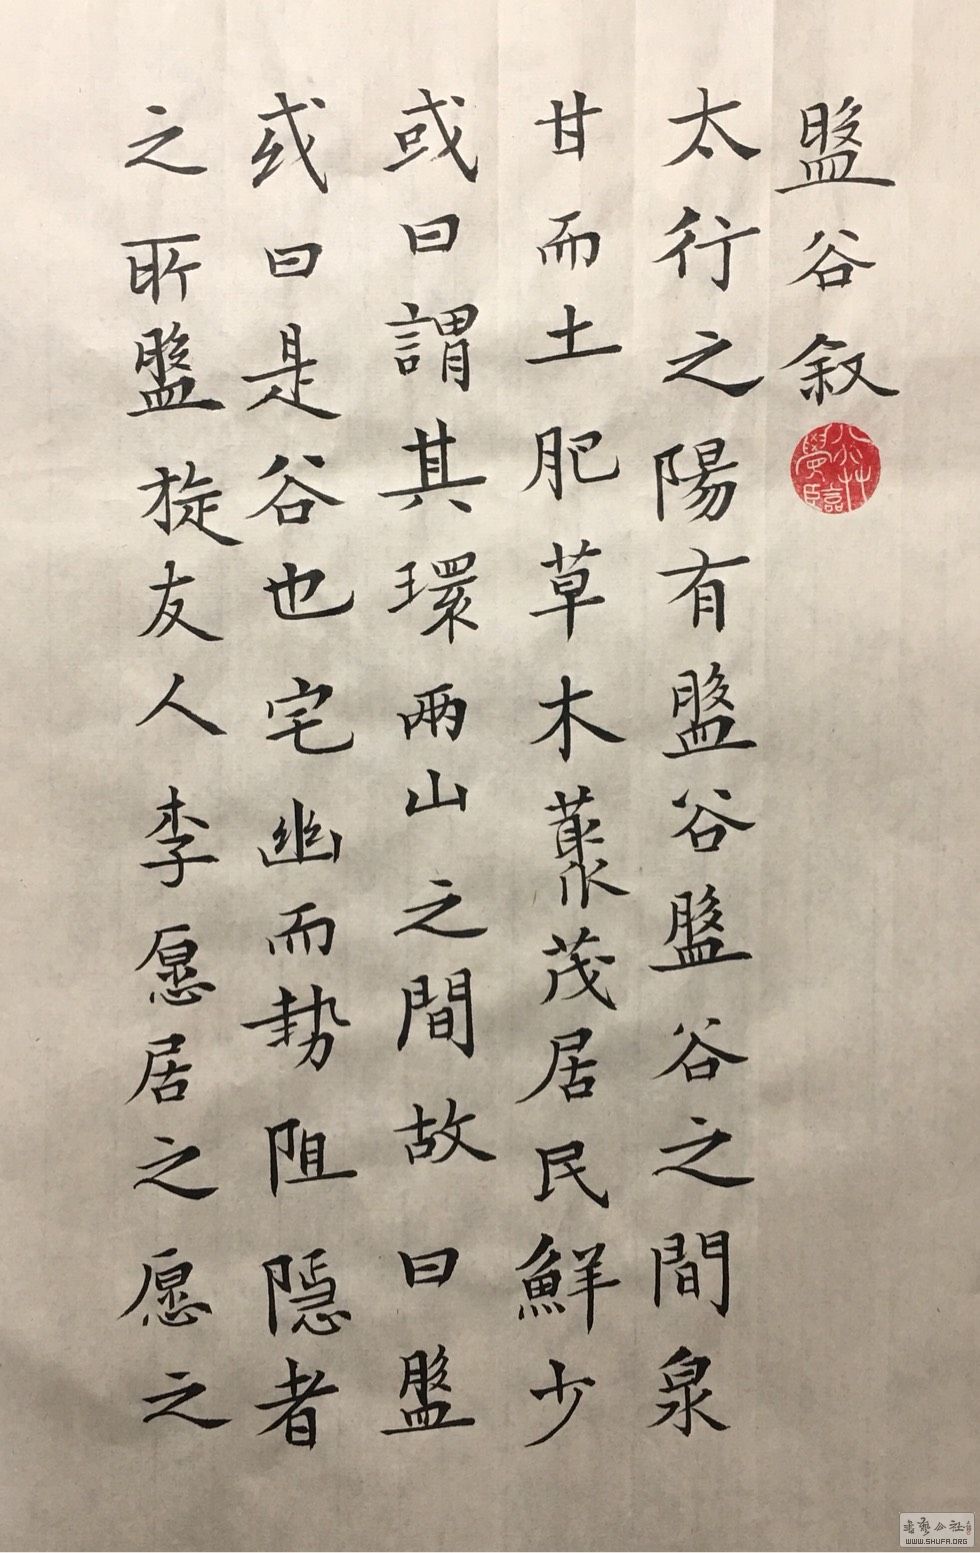 盤谷叙
太行之陽有盤谷盤谷之間泉
甘而土肥草木藂茂居民鮮少
或曰謂其環兩山之間故曰盤
或曰是谷也宅幽而勢阻隱者
之所盤旋友人李愿居之愿之
WWW.SHUFA.ORG